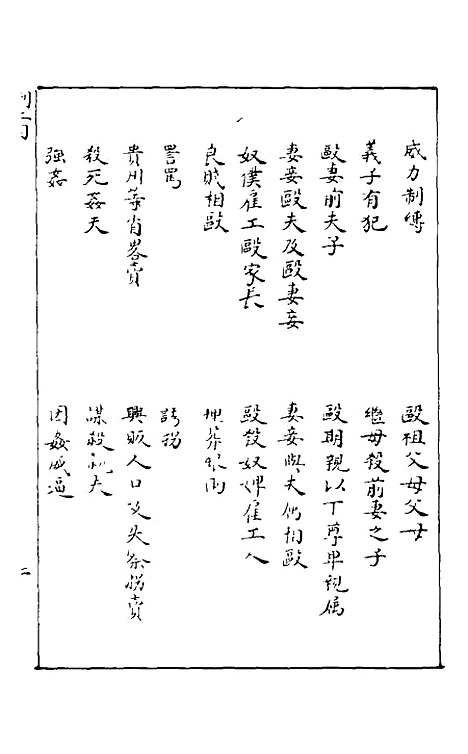 威力制縛
毆祖父母父母
義子有犯
繼母殺前妻之子
毆妻前夫子
毆期親以下尊卑親屬
妻妾毆夫及毆妻妾
妻妾與夫仇相毆
奴僕雇工毆家長
毆殺奴婢雇工人
良賤相毆
詈罵
貴州等省畧賣
興販人口及夹帶拐賣
殺死姦夫
謀殺親夫
強姦
因姦威逼
二